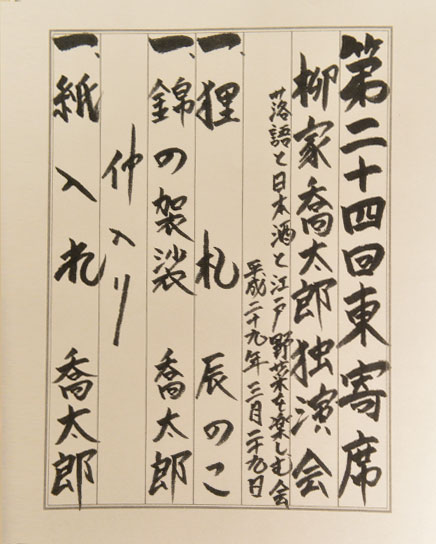 第二十四回東寄席
柳家喬太郎独演会
落語と日本酒と江戸野菜を楽しむ会
平成二十九年三月二十九日
一、狸札 辰のこ
一、錦の袈裟 喬太郎
仲入り
一、紙入れ 喬太郎